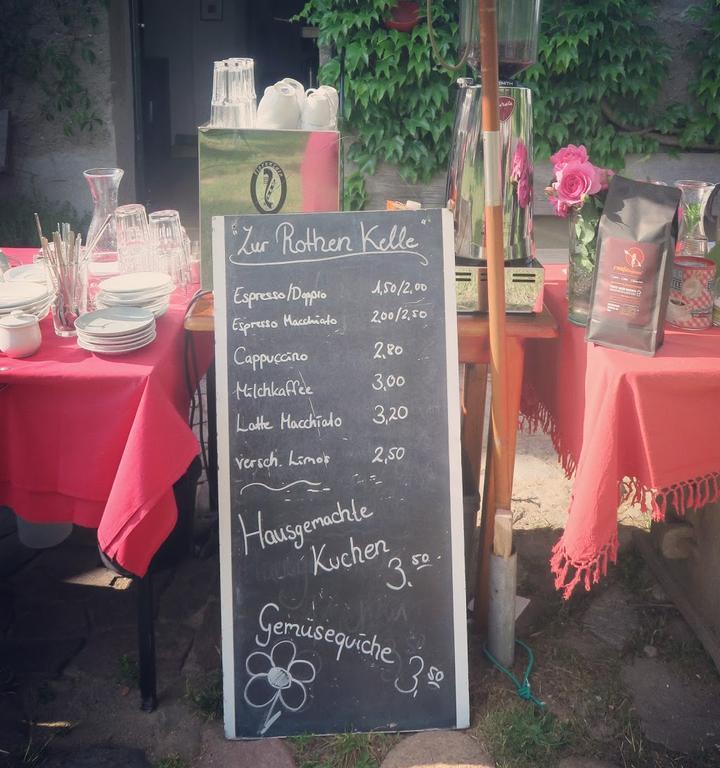 "Zur Rothen Kelle"
Espresso/Doppio 1,50/2,00
Espresso Macchiato 2,00/2,50
Cappuccino 2,80
Milchkaffee 3,00
Latte Macchiato 3,20
versch. Limos 2,50
Hausgemachte
Kuchen 3.50
Gemüsequiche 3,50